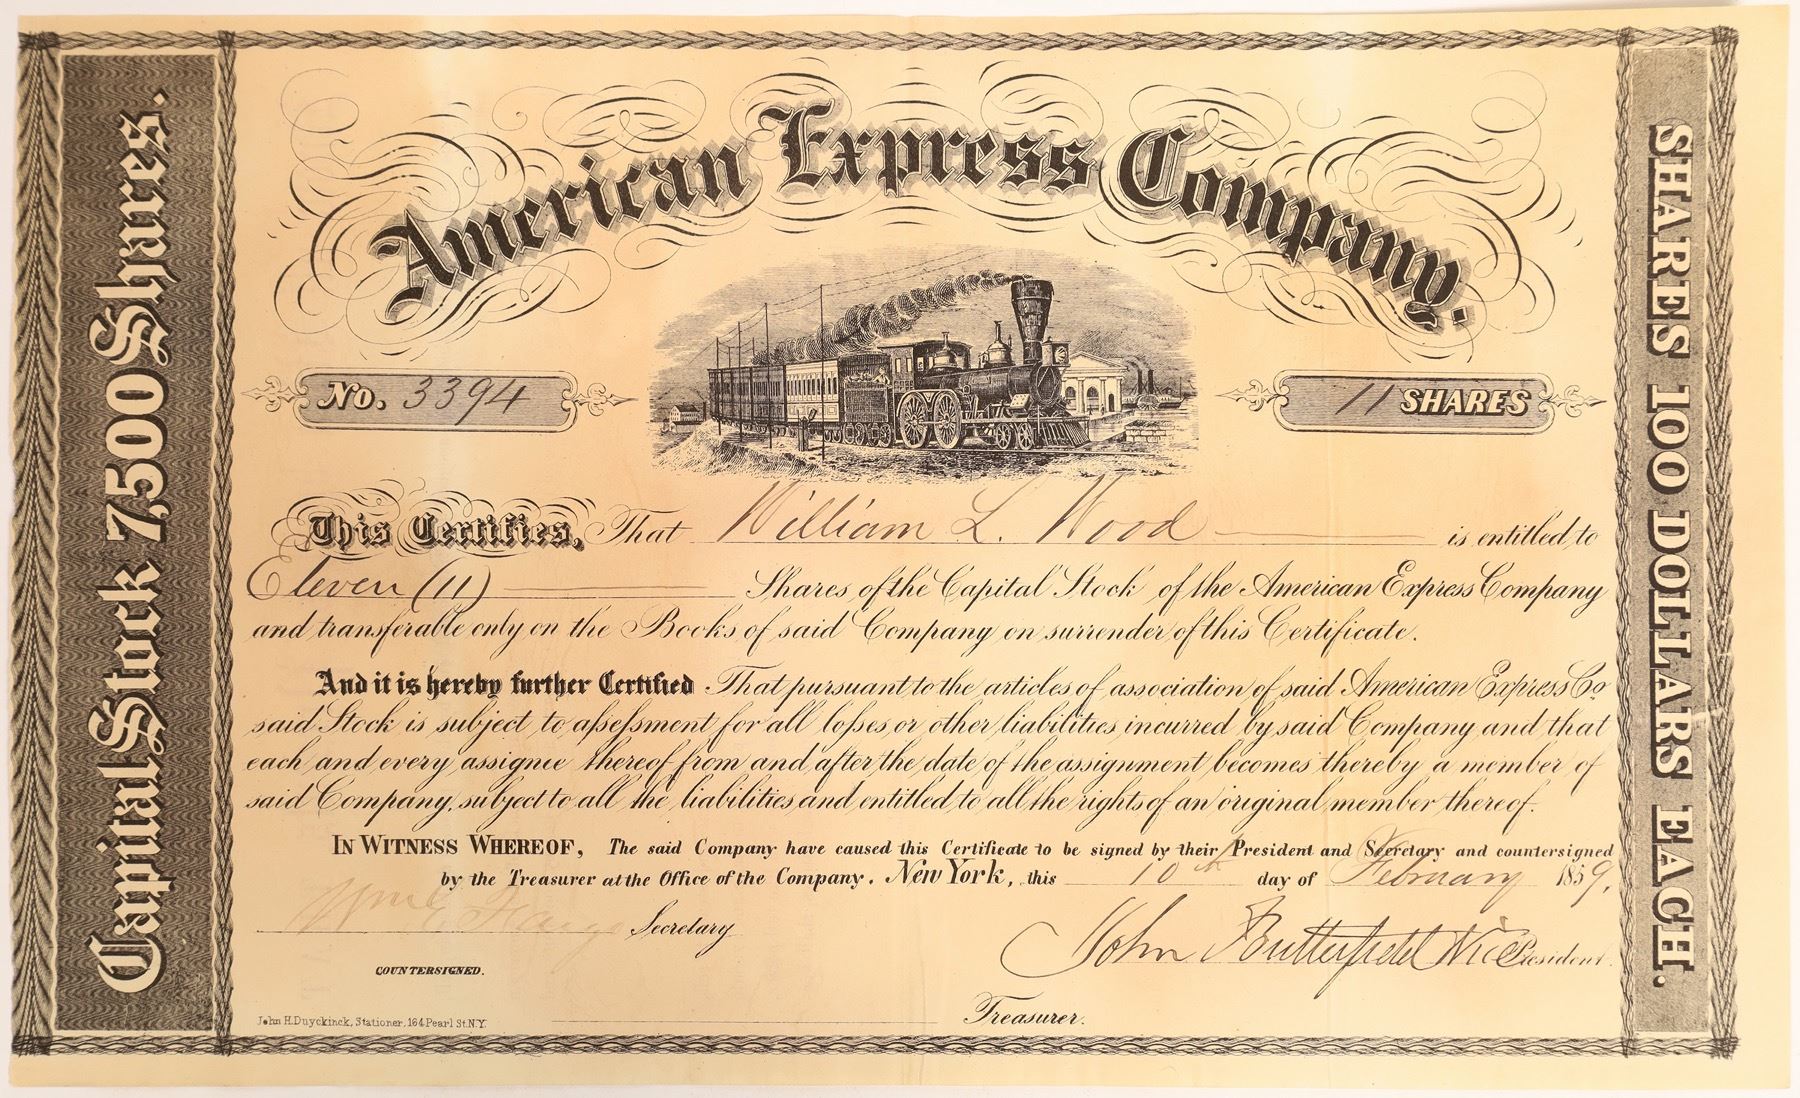 Capital Stock 7,500 Shares.
American Express Company.
No. 3394
11 SHARES
This Certifies, That William L. Wood is entitled to
Eleven (11) Shares of the Capital Stock of the American Express Company
and transferable only on the Books of said Company on surrender of this Certificate.
And it is hereby further Certified That pursuant to the articles of association of said American Express Co
said Stock is subject to aſseſsment for all loſses or other liabilities incurred by said Company and that
each and every assignee thereof from and after the date of the assignment becomes thereby a member of
said Company, subject to all the liabilities and entitled to all the rights of an original member thereof.
IN WITNESS WHEREOF, The said Company have caused this Certificate to be signed by their President and Secretary and countersigned
by the Treasurer at the Office of the Company. New York, this 10th day of February 1859.
Wm G Fargo Secretary
John Butterfield Vice President.
COUNTERSIGNED.
Treasurer.
John H. Duyckinck, Stationer, 164 Pearl St. N.Y.
SHARES 100 DOLLARS EACH.